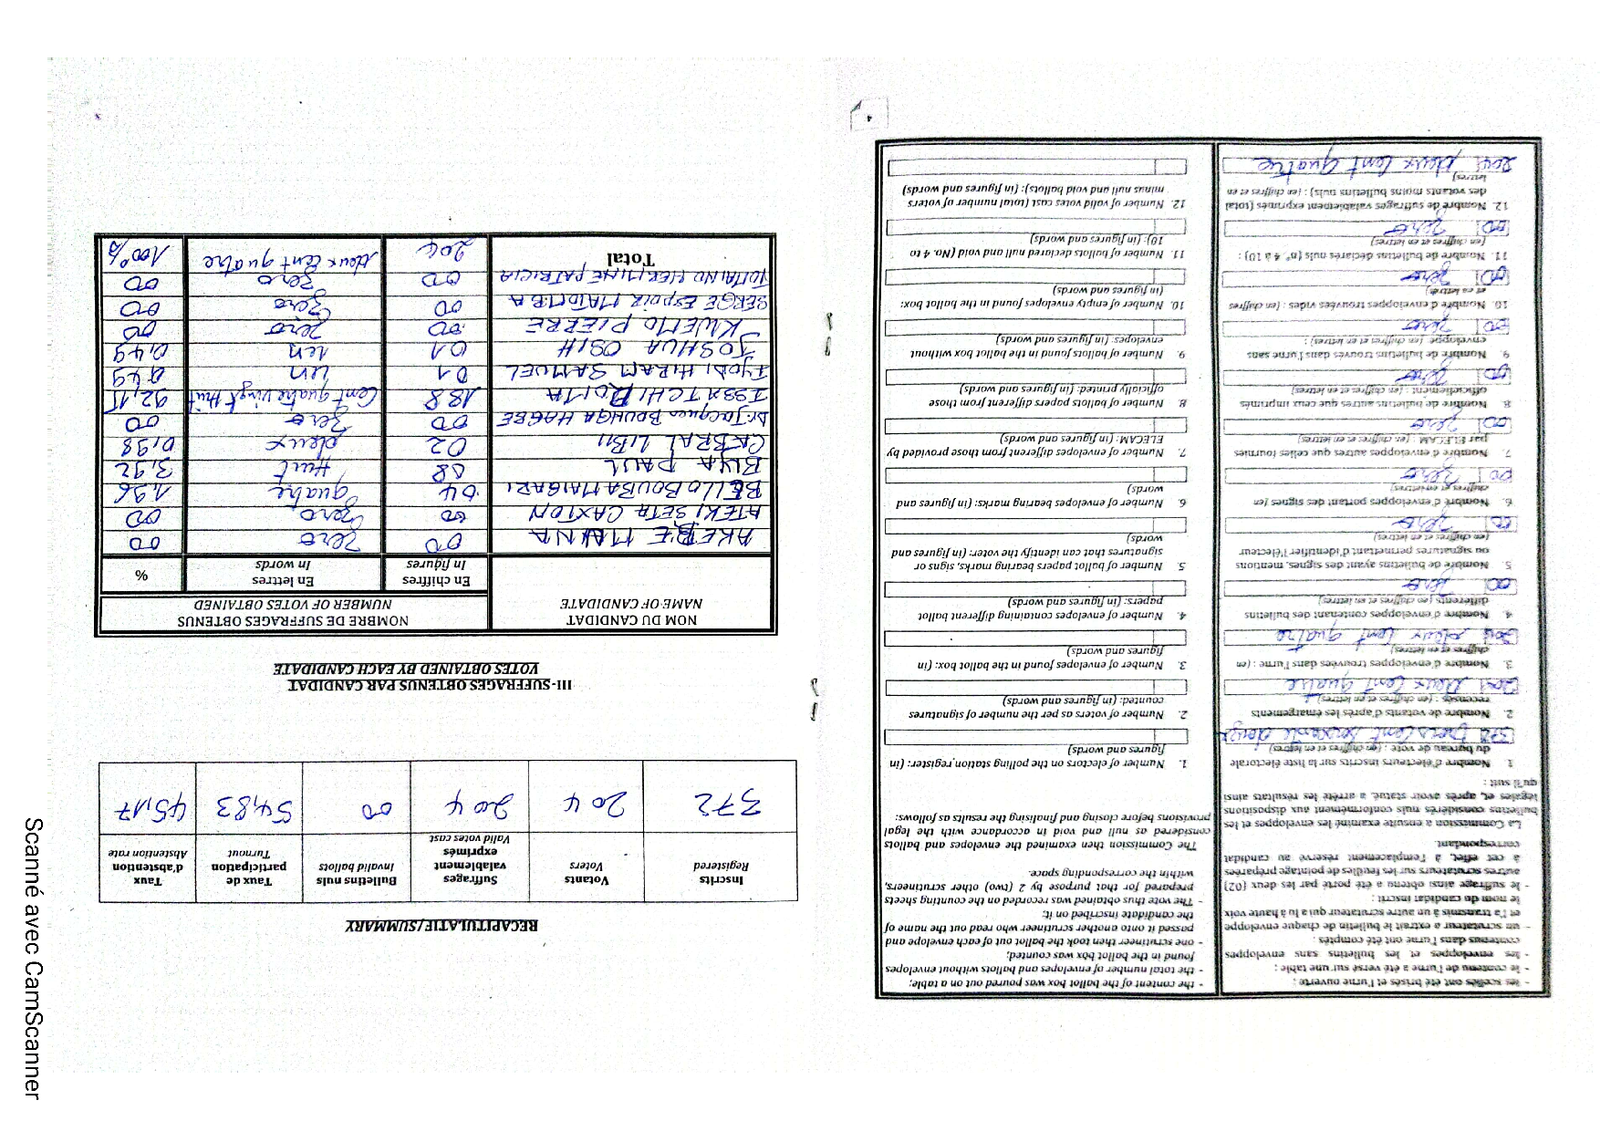 - les scellés ont été brisés et l'urne ouverte :
- le contenu de l'urne a été versé sur une table ;
- les enveloppes et les bulletins sans enveloppes
contenus dans l'urne ont été comptés ;
- un scrutateur a extrait le bulletin de chaque enveloppe
et l'a transmis à un autre scrutateur qui a lu à haute voix
le nom du candidat inscrit ;
- le suffrage ainsi obtenu a été porté par les deux (02)
autres scrutateurs sur les feuilles de pointage préparées
à cet effet, à l'emplacement réservé au candidat
correspondant.
La Commission a ensuite examiné les enveloppes et les
bulletins considérés nuls conformément aux dispositions
légales et, après avoir statué, a arrêté les résultats ainsi
qu'il suit :
1. Nombre d'électeurs inscrits sur la liste électorale
du bureau de vote : (en chiffres et en lettres)
372 Trois cent soixante douze
2. Nombre de votants d'après les émargements
recensés : (en chiffres et en lettres)
204 Deux Cent quatre
3. Nombre d'enveloppes trouvées dans l'urne : (en
chiffres et en lettres)
204 deux Cent quatre
4. Nombre d'enveloppes contenant des bulletins
différents (en chiffres et en lettres)
00 zero
5. Nombre de bulletins ayant des signes, mentions
ou signatures permettant d'identifier l'électeur
(en chiffres et en lettres)
00 zero
6. Nombre d'enveloppes portant des signes (en
chiffres et en lettres)
00 zero
7. Nombre d'enveloppes autres que celles fournies
par ELECAM : (en chiffres et en lettres)
00 zero
8. Nombre de bulletins autres que ceux imprimés
officiellement : (en chiffres et en lettres)
00 zero
9. Nombre de bulletins trouvés dans l'urne sans
enveloppe (en chiffres et en lettres) :
00 zero
10. Nombre d'enveloppes trouvées vides : (en chiffres
et en lettres)
00 zero
11. Nombre de bulletins déclarés nuls (n°. 4 à 10) :
(en chiffres et en lettres)
00 zero
12. Nombre de suffrages valablement exprimés (total
des votants moins bulletins nuls) : (en chiffres et en
lettres)
204 Deux Cent quatre
- the content of the ballot box was poured out on a table;
- the total number of envelopes and ballots without envelopes
found in the ballot box was counted;
- one scrutineer then took the ballot out of each envelope and
passed it onto another scrutineer who read out the name of
the candidate inscribed on it;
- The vote thus obtained was recorded on the counting sheets
prepared for that purpose by 2 (two) other scrutineers,
within the corresponding space.
The Commission then examined the envelopes and ballots
considered as null and void in accordance with the legal
provisions before closing and finalising the results as follows:
1. Number of electors on the polling station register: (in
figures and words)
2. Number of voters as per the number of signatures
counted: (in figures and words)
3. Number of envelopes found in the ballot box: (in
figures and words)
4. Number of envelopes containing different ballot
papers: (in figures and words)
5. Number of ballot papers bearing marks, signs or
signatures that can identify the voter: (in figures and
words)
6. Number of envelopes bearing marks: (in figures and
words)
7. Number of envelopes different from those provided by
ELECAM: (in figures and words)
8. Number of ballots papers different from those
officially printed: (in figures and words)
9. Number of ballots found in the ballot box without
envelopes: (in figures and words)
10. Number of empty envelopes found in the ballot box:
(in figures and words)
11. Number of ballots declared null and void (No. 4 to
10): (in figures and words)
12. Number of valid votes cast (total number of voters
minus null and void ballots): (in figures and words)
4
RECAPITULATIF/SUMMARY
Inscrits Registered | Votants Voters | Suffrages valablement exprimés Valid votes cast | Bulletins nuls Invalid ballots | Taux de participation Turnout | Taux d'abstention Abstention rate
372 | 204 | 204 | 00 | 54,83 | 45,17
III-SUFFRAGES OBTENUS PAR CANDIDAT
VOTES OBTAINED BY EACH CANDIDATE
NOM DU CANDIDAT NAME OF CANDIDATE | NOMBRE DE SUFFRAGES OBTENUS NUMBER OF VOTES OBTAINED
En chiffres In figures | En lettres In words | %
AKERE MUNA | 00 | zero | 00
ATEKI SETA CAXTON | 00 | zero | 00
BELLO BOUBA MAIGARI | 04 | quatre | 1,96
BIYA PAUL | 08 | Huit | 3,92
CABRAL LIBII | 02 | deux | 0,98
Dr. Jacques BOUHGA HAGBE | 00 | zero | 00
ISSA TCHIROMA | 188 | Cent quatre vingt huit | 92,15
IYODI HIRAM SAMUEL | 01 | un | 0,49
JOSHUA OSIH | 01 | un | 0,49
KWEMO PIERRE | 00 | zero | 00
SERGE ESPOIR MATOMBA | 00 | zero | 00
TOMAINO HERMINE PATRICIA | 00 | zero | 00
Total | 204 | deux Cent quatre | 100%
Scanné avec CamScanner